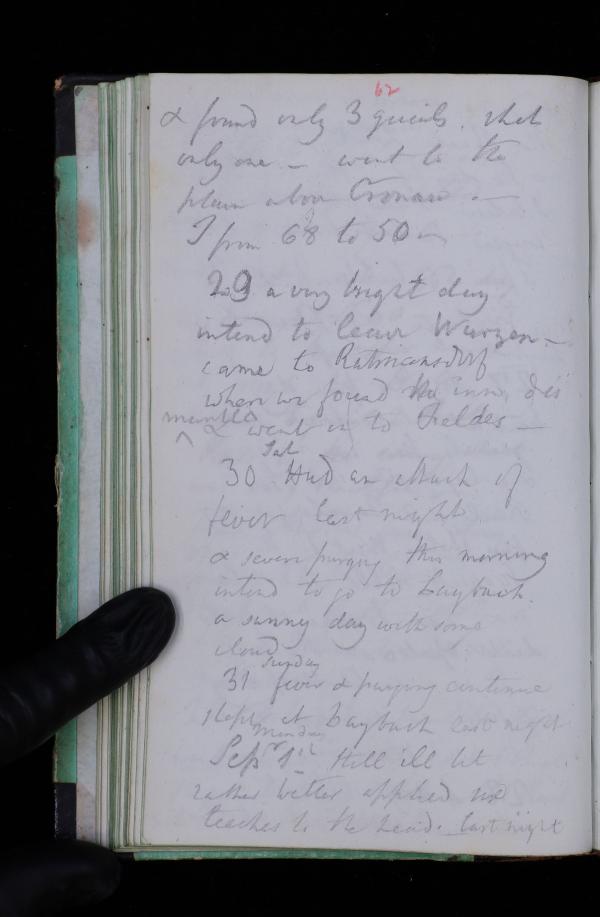 62
& found only 3 quails. shot
only one – went to the
plain above Cronau. –
T from 68 to 50 –
29 a very bright day
intend to leave Wurzen –
came to Ratmansdorf
where we found the inn dis
mantled & went on to Feldes –
Sat
30 Had an attack of
fever last night
& severe purging this morning
intend to go to Laybach.
a sunny day with some
cloud
Sunday
31 fever & purging continue
slept at Laybach last night
Monday
Sepr 1st Still ill but
rather better applied
leaches to the head. last night